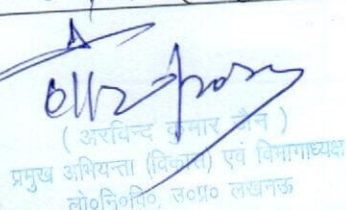 ( अरविन्द कुमार जैन )
प्रमुख अभियन्ता (विकास) एवं विभागाध्यक्ष
लो०नि०वि०, उ०प्र० लखनऊ